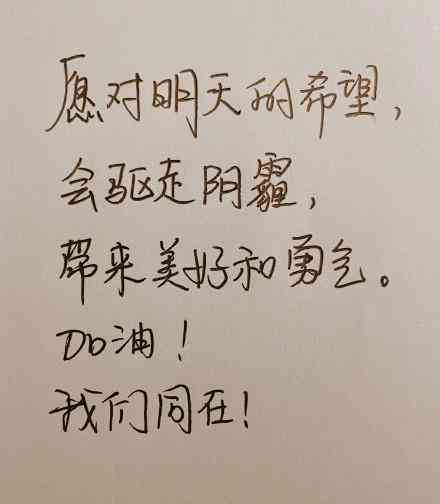 愿对明天的希望,
会驱走阴霾,
带来美好和勇气。
Do油!
我们同在!